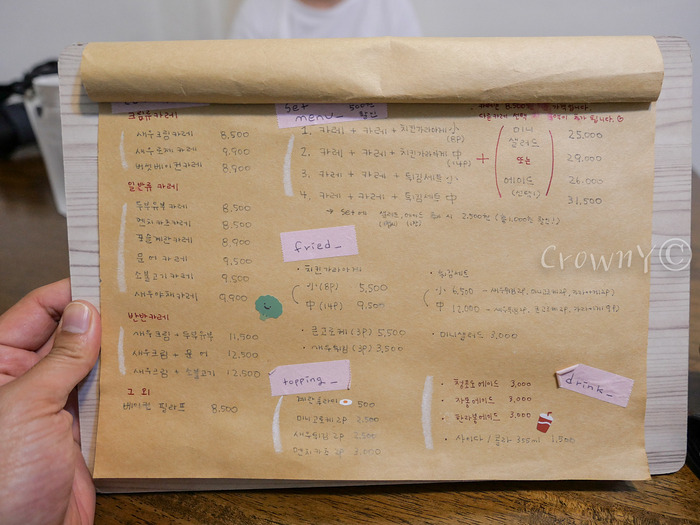 크림류카레
새우크림카레 8,500
새우로제카레 9,900
버섯베이컨카레 8,900
일반류 카레
두부유부카레 8,500
멘치카츠카레 8,500
포슬계란카레 8,900
문어카레 9,500
소불고기카레 9,500
새우야채카레 9,900
반반카레
새우크림 + 두부유부 11,900
새우크림 + 문어 12,500
새우크림 + 소불고기 12,500
그 외
베이컨 필라프 8,500
Set menu_ 500원 할인
1. 카레 + 카레 + 치킨가라아게 小 (8P)
2. 카레 + 카레 + 치킨가라아게 中 (14P)
3. 카레 + 카레 + 튀김세트 小
4. 카레 + 카레 + 튀김세트 中
+ (미니샐러드 또는 에이드 (선택1))
25,000
29,000
26,000
31,500
→ Set에 샐러드, 에이드 추가 시 2,500원
fried_
· 치킨가라아게
小 (8P) 5,500
中 (14P) 9,500
· 큰고로케 (3P) 5,500
· 새우튀김 (3P) 3,500
· 튀김세트
小 6,500 - 새우튀김2P, 미니고로케2P,
中 12,000 - 새우튀김 큰고로케2P,
· 미니샐러드 3,000
topping_
계란후라이 500
미니고로케 2P 2,500
새우튀김 2P 2,500
멘치카츠 2P 3,000
drink_
· 청포도에이드 3,000
· 자몽에이드 3,000
· 한라봉에이드 3,000
· 사이다 / 콜라 355ml 1,500
CrownY©